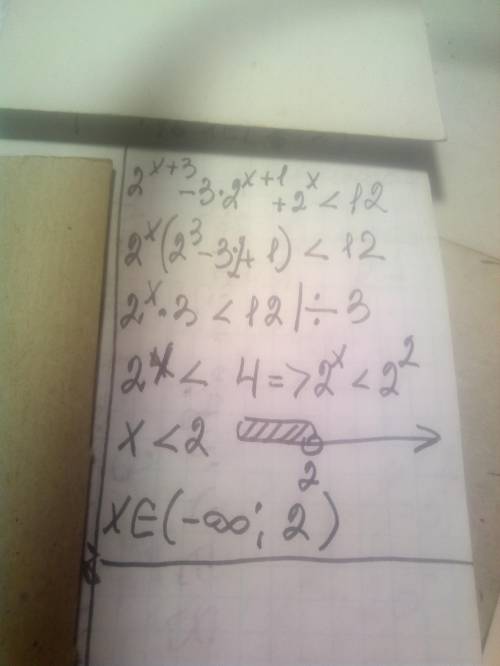 2^{x+3} -3·2^{x+1} +2^x < 12
2^x(2^3 -3·2+1) < 12
2^x·3 < 12 | ÷ 3
2^x < 4 => 2^x < 2^2
x < 2
2
x∈(-∞; 2)